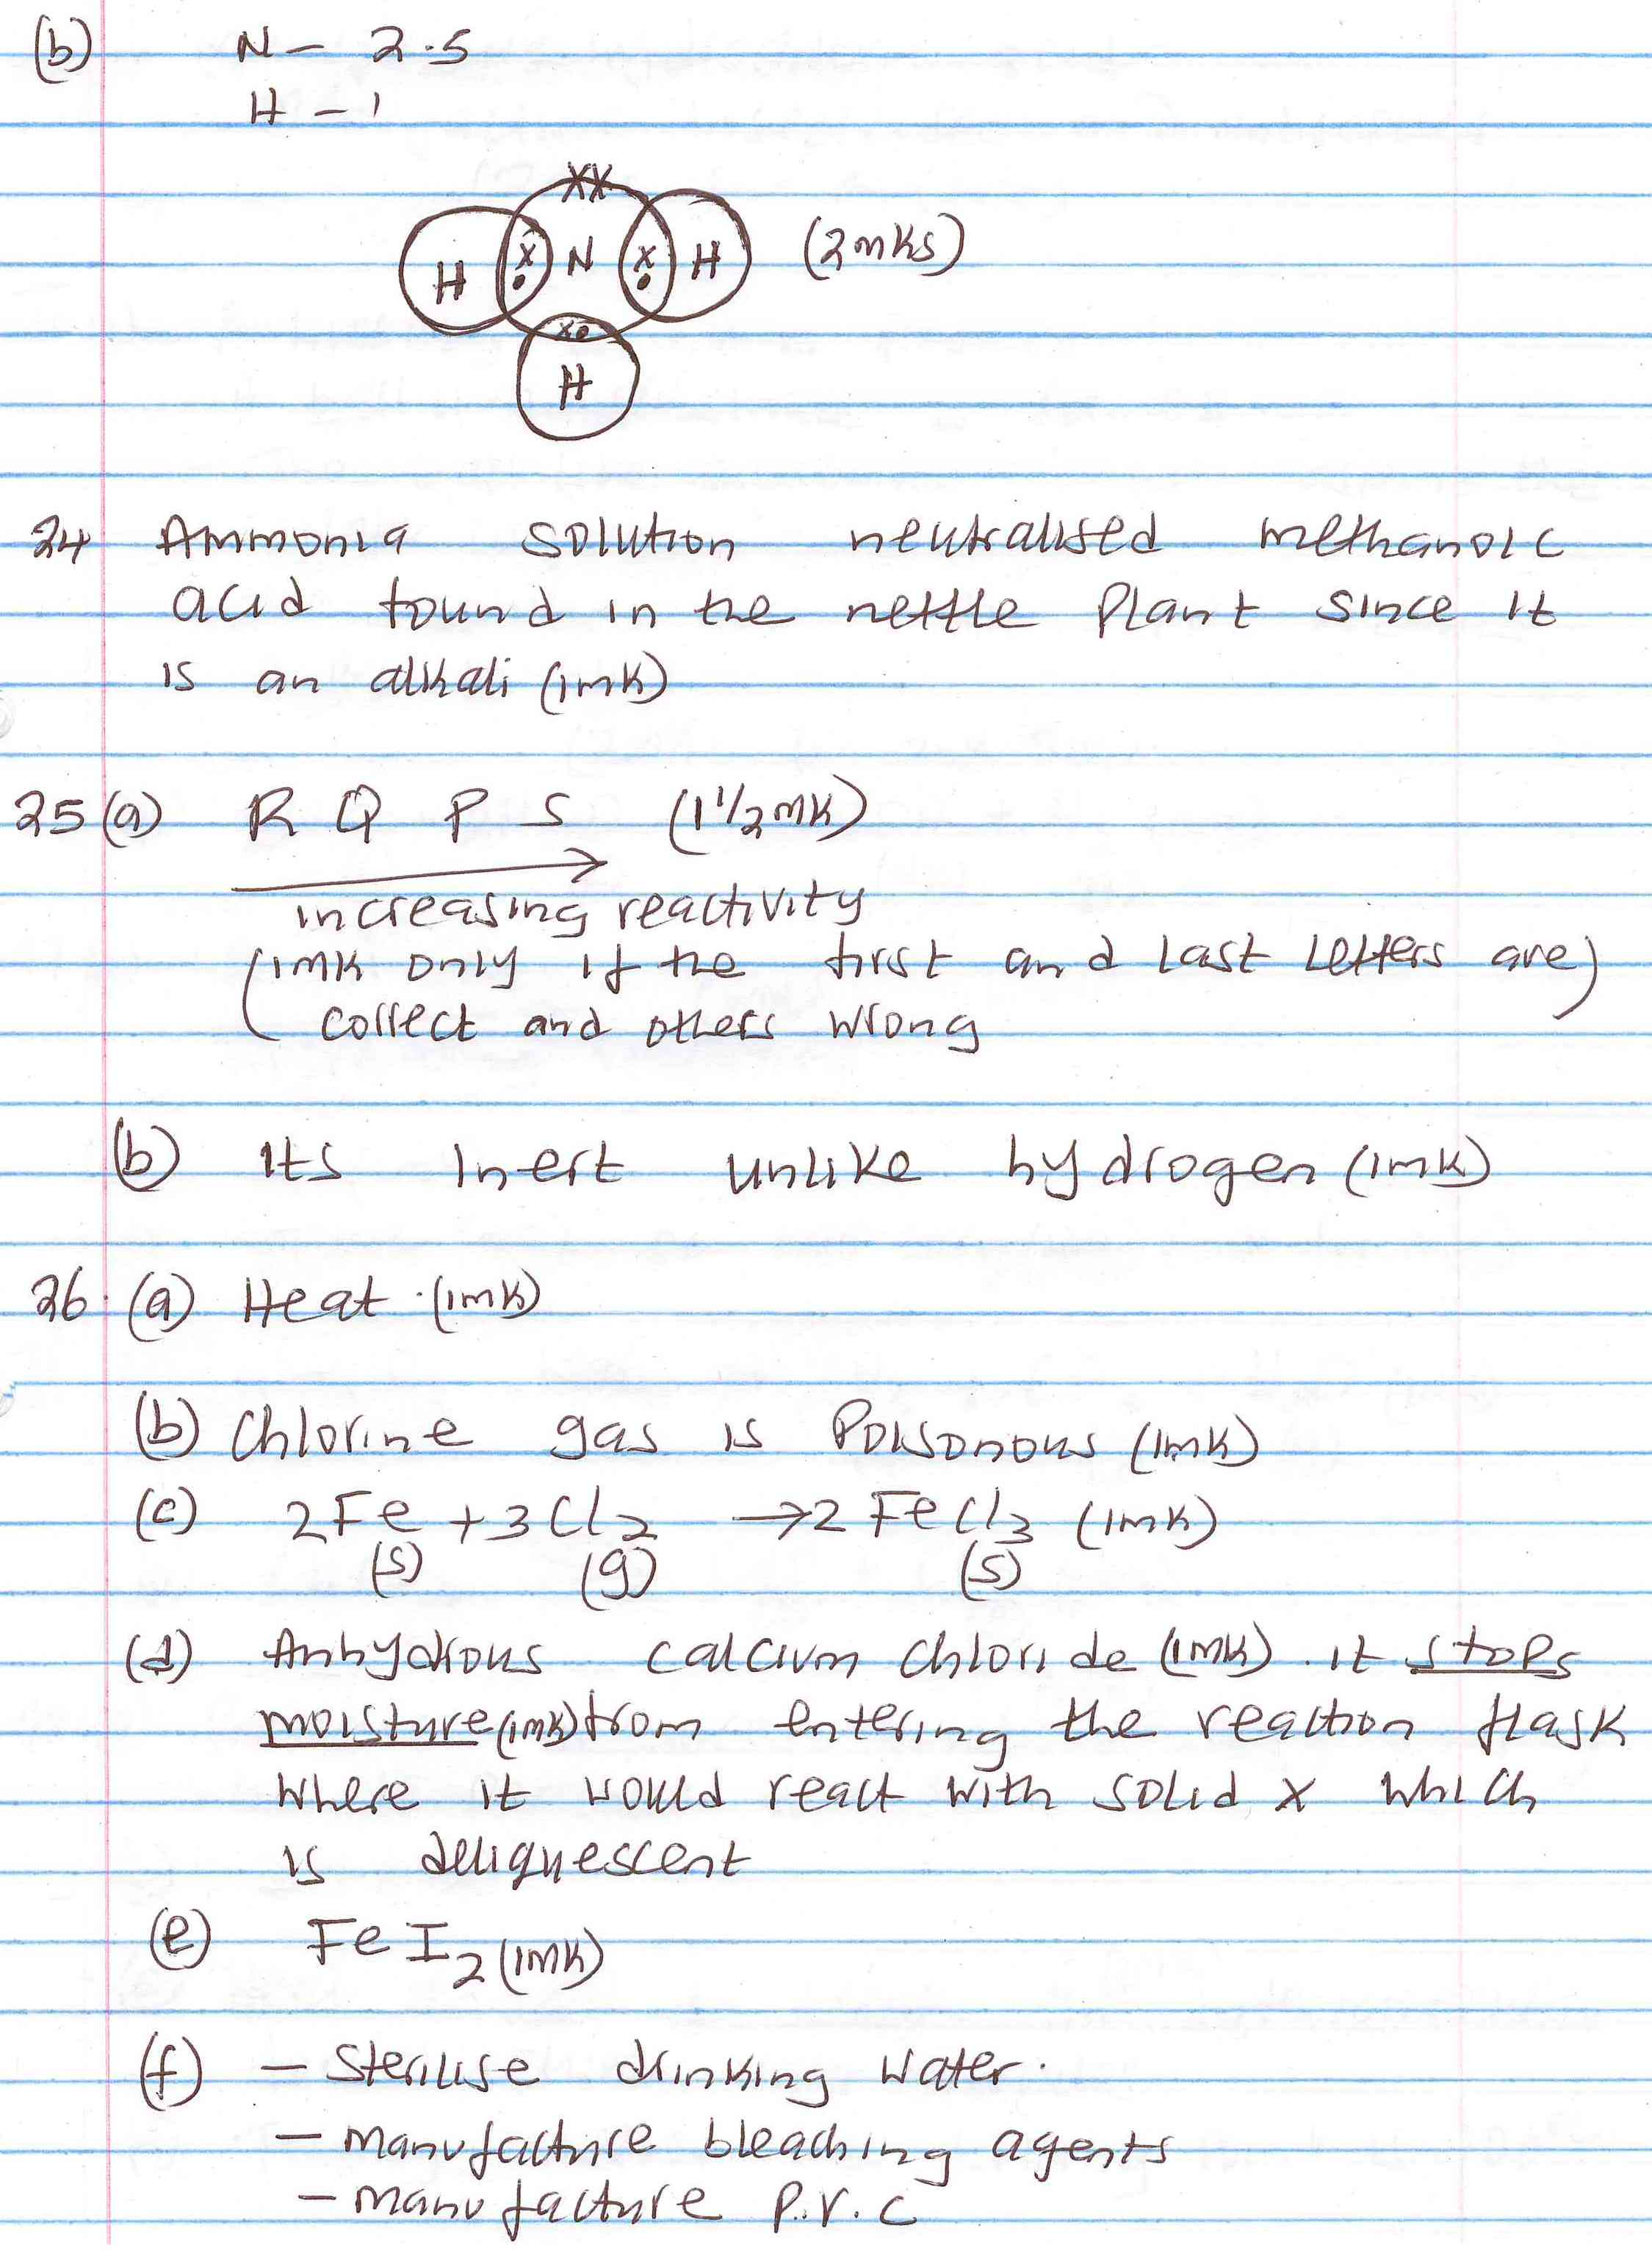 (b) N - 2.5
H - 1
XX
H x• N x• H (2mks)
x•
H
24 Ammonia solution neutralised methanoic
acid found in the nettle plant since it
is an alkali (1mk)
25 (a) R Q P S (1 1/2 mk)
→
increasing reactivity
(1mk only if the first and last letters are)
correct and others wrong
(b) Its inert unlike hydrogen (1mk)
26. (a) Heat. (1mk)
(b) Chlorine gas is poisonous (1mk)
(c) 2Fe + 3Cl2 → 2FeCl3 (1mk)
(s) (g) (s)
(d) Anhydrous calcium chloride (1mk). it stops
moisture (1mk) from entering the reaction flask
where it would react with solid X which
is deliquescent
(e) FeI2 (1mk)
(f) - Sterilise drinking water.
- manufacture bleaching agents
- manufacture p.v.c